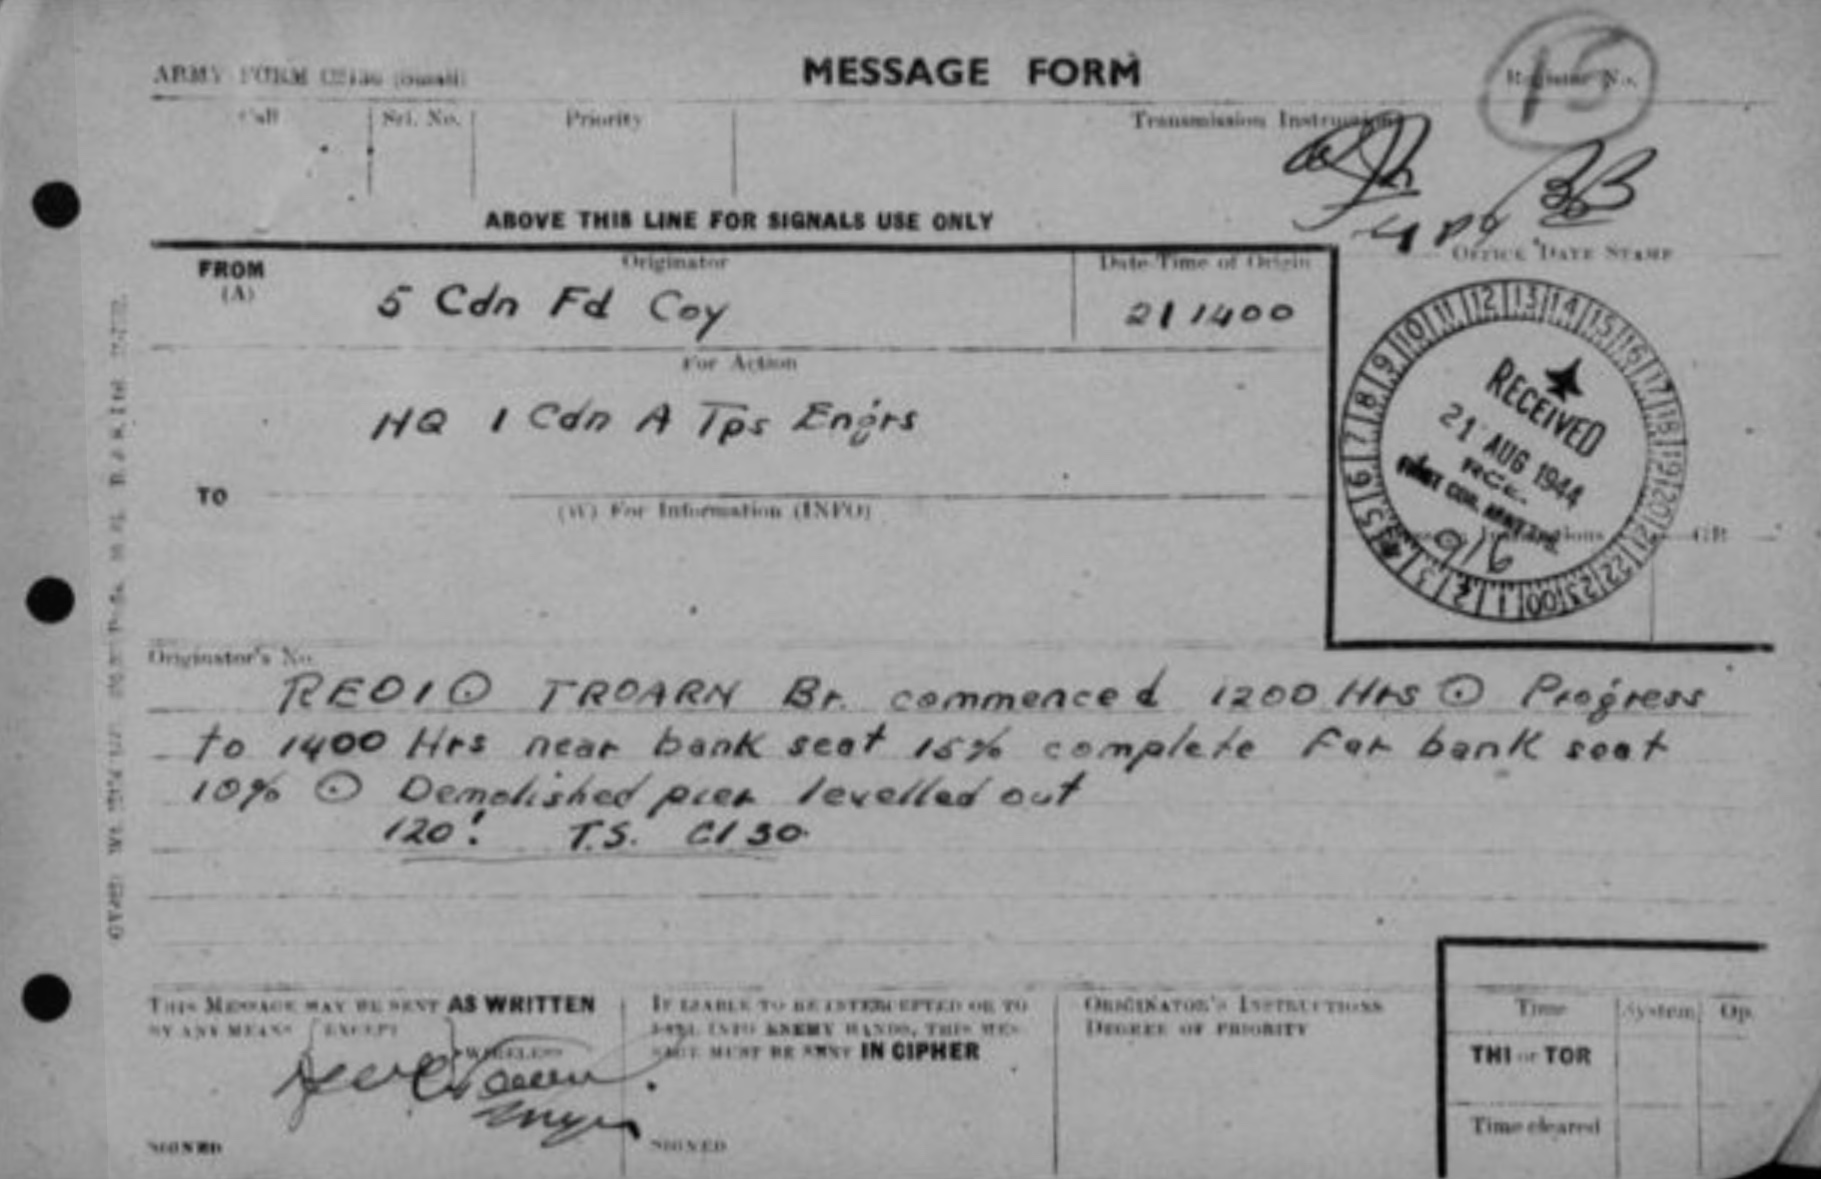 ARMY FORM C2136 (Small)
MESSAGE FORM
Register No.
15
Call
Srl. No.
Priority
Transmission Instructions
ABOVE THIS LINE FOR SIGNALS USE ONLY
FROM
(A)
Originator
Date-Time of Origin
OFFICE DATE STAMP
5 Cdn Fd Coy
211400
For Action
HQ 1 Cdn A Tps Engrs
TO
(W) For Information (INFO)
RECEIVED
21 AUG 1944
RCE.
FIRST CDN. ARMY TPS.
916
GR
Originator's No.
RE01 ⊙ TROARN Br. commenced 1200 Hrs ⊙ Progress
to 1400 Hrs near bank seat 15% complete Far bank seat
10% ⊙ Demolished pier levelled out
120' T.S. Cl 30
THIS MESSAGE MAY BE SENT AS WRITTEN
BY ANY MEANS EXCEPT
WIRELESS
SIGNED
IF LIABLE TO BE INTERCEPTED OR TO
FALL INTO ENEMY HANDS, THIS MES-
SAGE MUST BE SENT IN CIPHER
SIGNED
ORIGINATOR'S INSTRUCTIONS
DEGREE OF PRIORITY
Time
System
Op.
THI or TOR
Time cleared